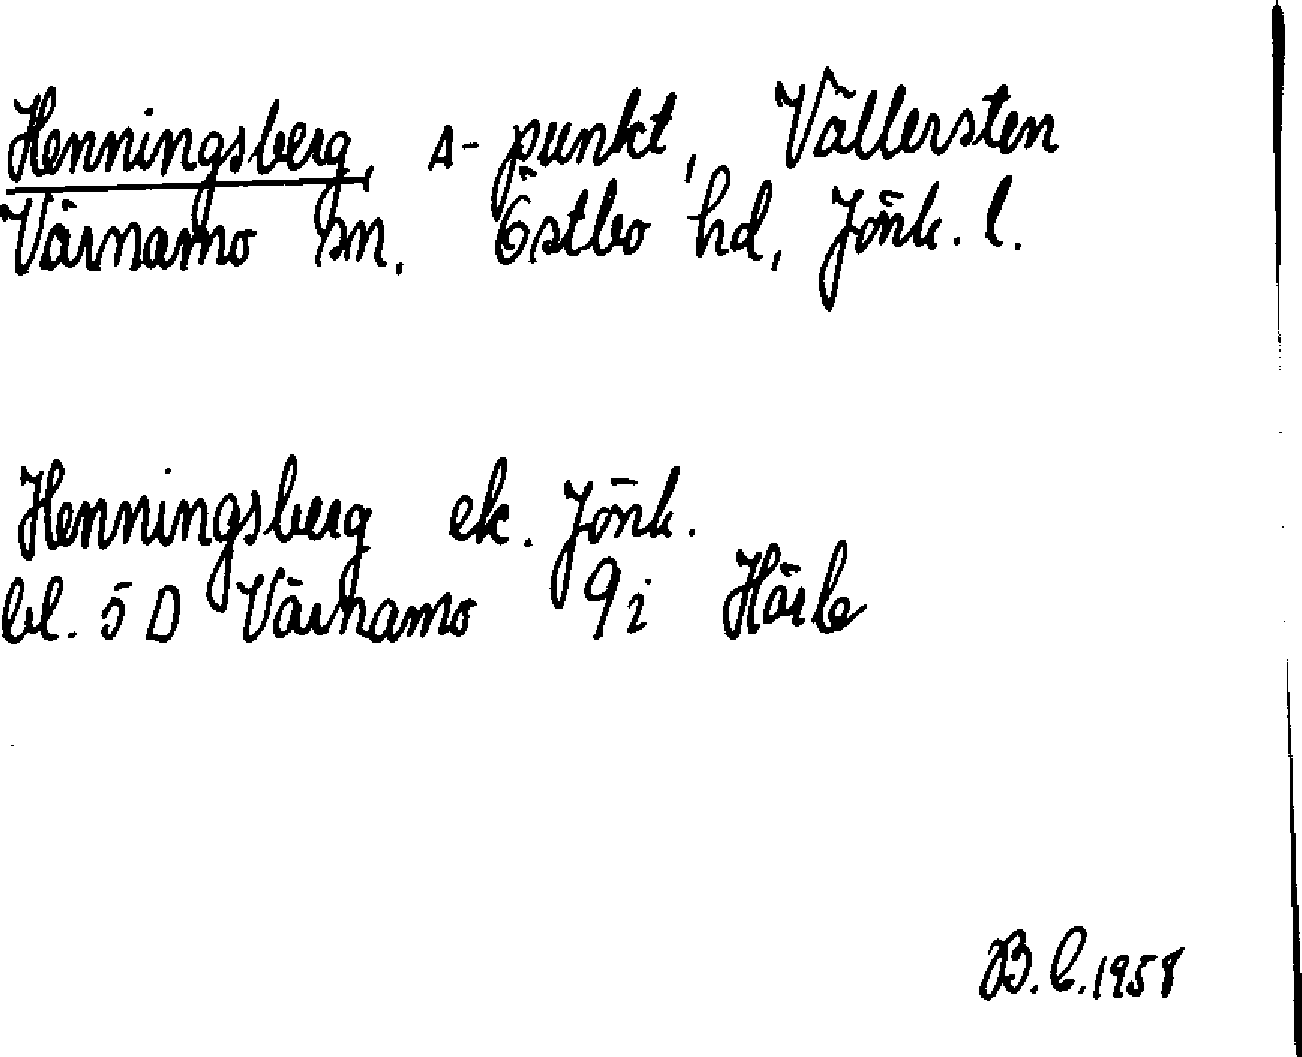 Henningsberg, Δ-punkt, Vällersten
Värnamo sn. Östbo hd, Jönk. l.
Henningsberg ek. Jönk.
bl. 5 D Värnamo 9i Härle
B. C. 1958